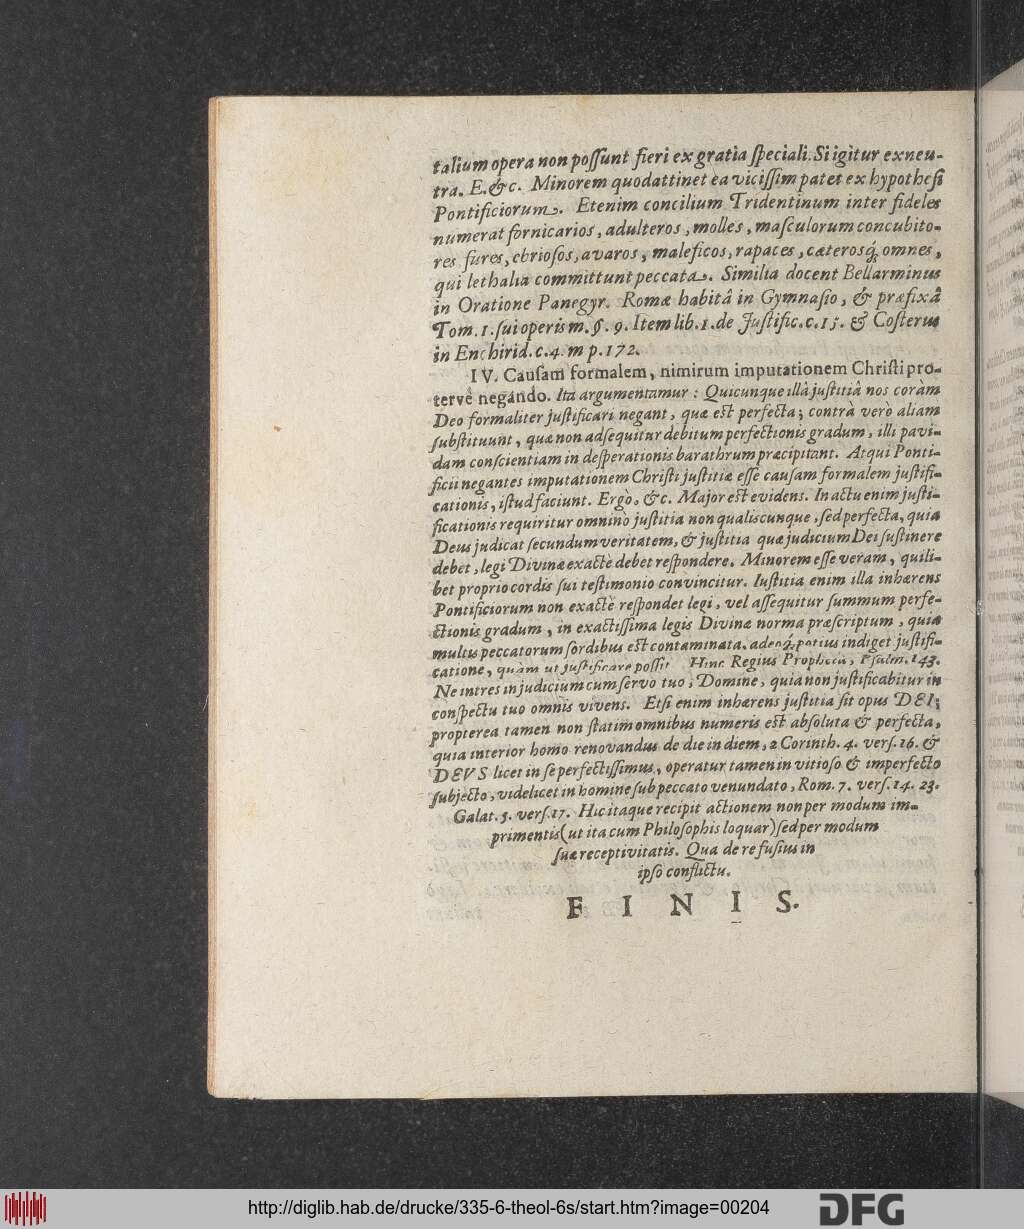 talium opera non poſſunt fieri ex gratia ſpeciali. Si igitur ex neu-
tra. E. &c. Minorem quod attinet ea viciſſim patet ex hypotheſi
Pontificiorum. Etenim concilium Tridentinum inter fideles
numerat fornicarios, adulteros, molles, maſculorum concubito-
res fures, ebrioſos, avaros, maleficos, rapaces, cæterosq́ omnes,
qui lethalia committunt peccata. Similia docent Bellarminus
in Oratione Panegyr. Romæ habitâ in Gymnaſio, & præfixâ
Tom. 1. ſui operis m. §. 9. Item lib. 1. de Juſtific. c. 15. & Coſterus
in Enchirid. c. 4. m p. 172.
IV. Cauſam formalem, nimirum imputationem Chriſti pro-
tervè negando. Ita argumentamur: Quicunque illâ juſtitiâ nos coràm
Deo formaliter juſtificari negant, quæ eſt perfecta; contrà verò aliam
ſubſtituunt, quæ non adſequitur debitum perfectionis gradum, illi pavi-
dam conſcientiam in deſperationis barathrum præcipitant. Atqui Ponti-
ficii negantes imputationem Chriſti juſtitiæ eſſe cauſam formalem juſtifi-
cationis, iſtud faciunt. Ergo, &c. Major eſt evidens. In actu enim juſti-
ficationis requiritur omninò juſtitia non qualiscunque, ſed perfecta, quia
Deus judicat ſecundum veritatem, & juſtitia quæ judicium Dei ſuſtinere
debet, legi Divinæ exactè debet reſpondere. Minorem eſſe veram, quili-
bet proprio cordis ſui teſtimonio convincitur. Iuſtitia enim illa inhærens
Pontificiorum non exactè reſpondet legi, vel aſſequitur ſummum perfe-
ctionis gradum, in exactiſſima legis Divinæ norma præſcriptum, quia
multis peccatorum ſordibus eſt contaminata, adeoq́ potius indiget juſtifi-
catione, quàm ut juſtificare poſſit. Hinc Regius Propheta, Pſalm. 143.
Ne intres in judicium cum ſervo tuo, Domine, quia non juſtificabitur in
conſpectu tuo omnis vivens. Etſi enim inhærens juſtitia ſit opus DEI;
propterea tamen non ſtatim omnibus numeris eſt abſoluta & perfecta,
quia interior homo renovandus de die in diem, 2 Corinth. 4. verſ. 16. &
DEUS licet in ſe perfectiſſimus, operatur tamen in vitioſo & imperfecto
ſubjecto, videlicet in homine ſub peccato venundato, Rom. 7. verſ. 14. 23.
Galat. 5. verſ. 17. Hic itaque recipit actionem non per modum im-
primentis (ut ita cum Philoſophis loquar) ſed per modum
ſuæ receptivitatis. Qua de re fuſius in
ipſo conflictu.
FINIS.
http://diglib.hab.de/drucke/335-6-theol-6s/start.htm?image=00204
DFG